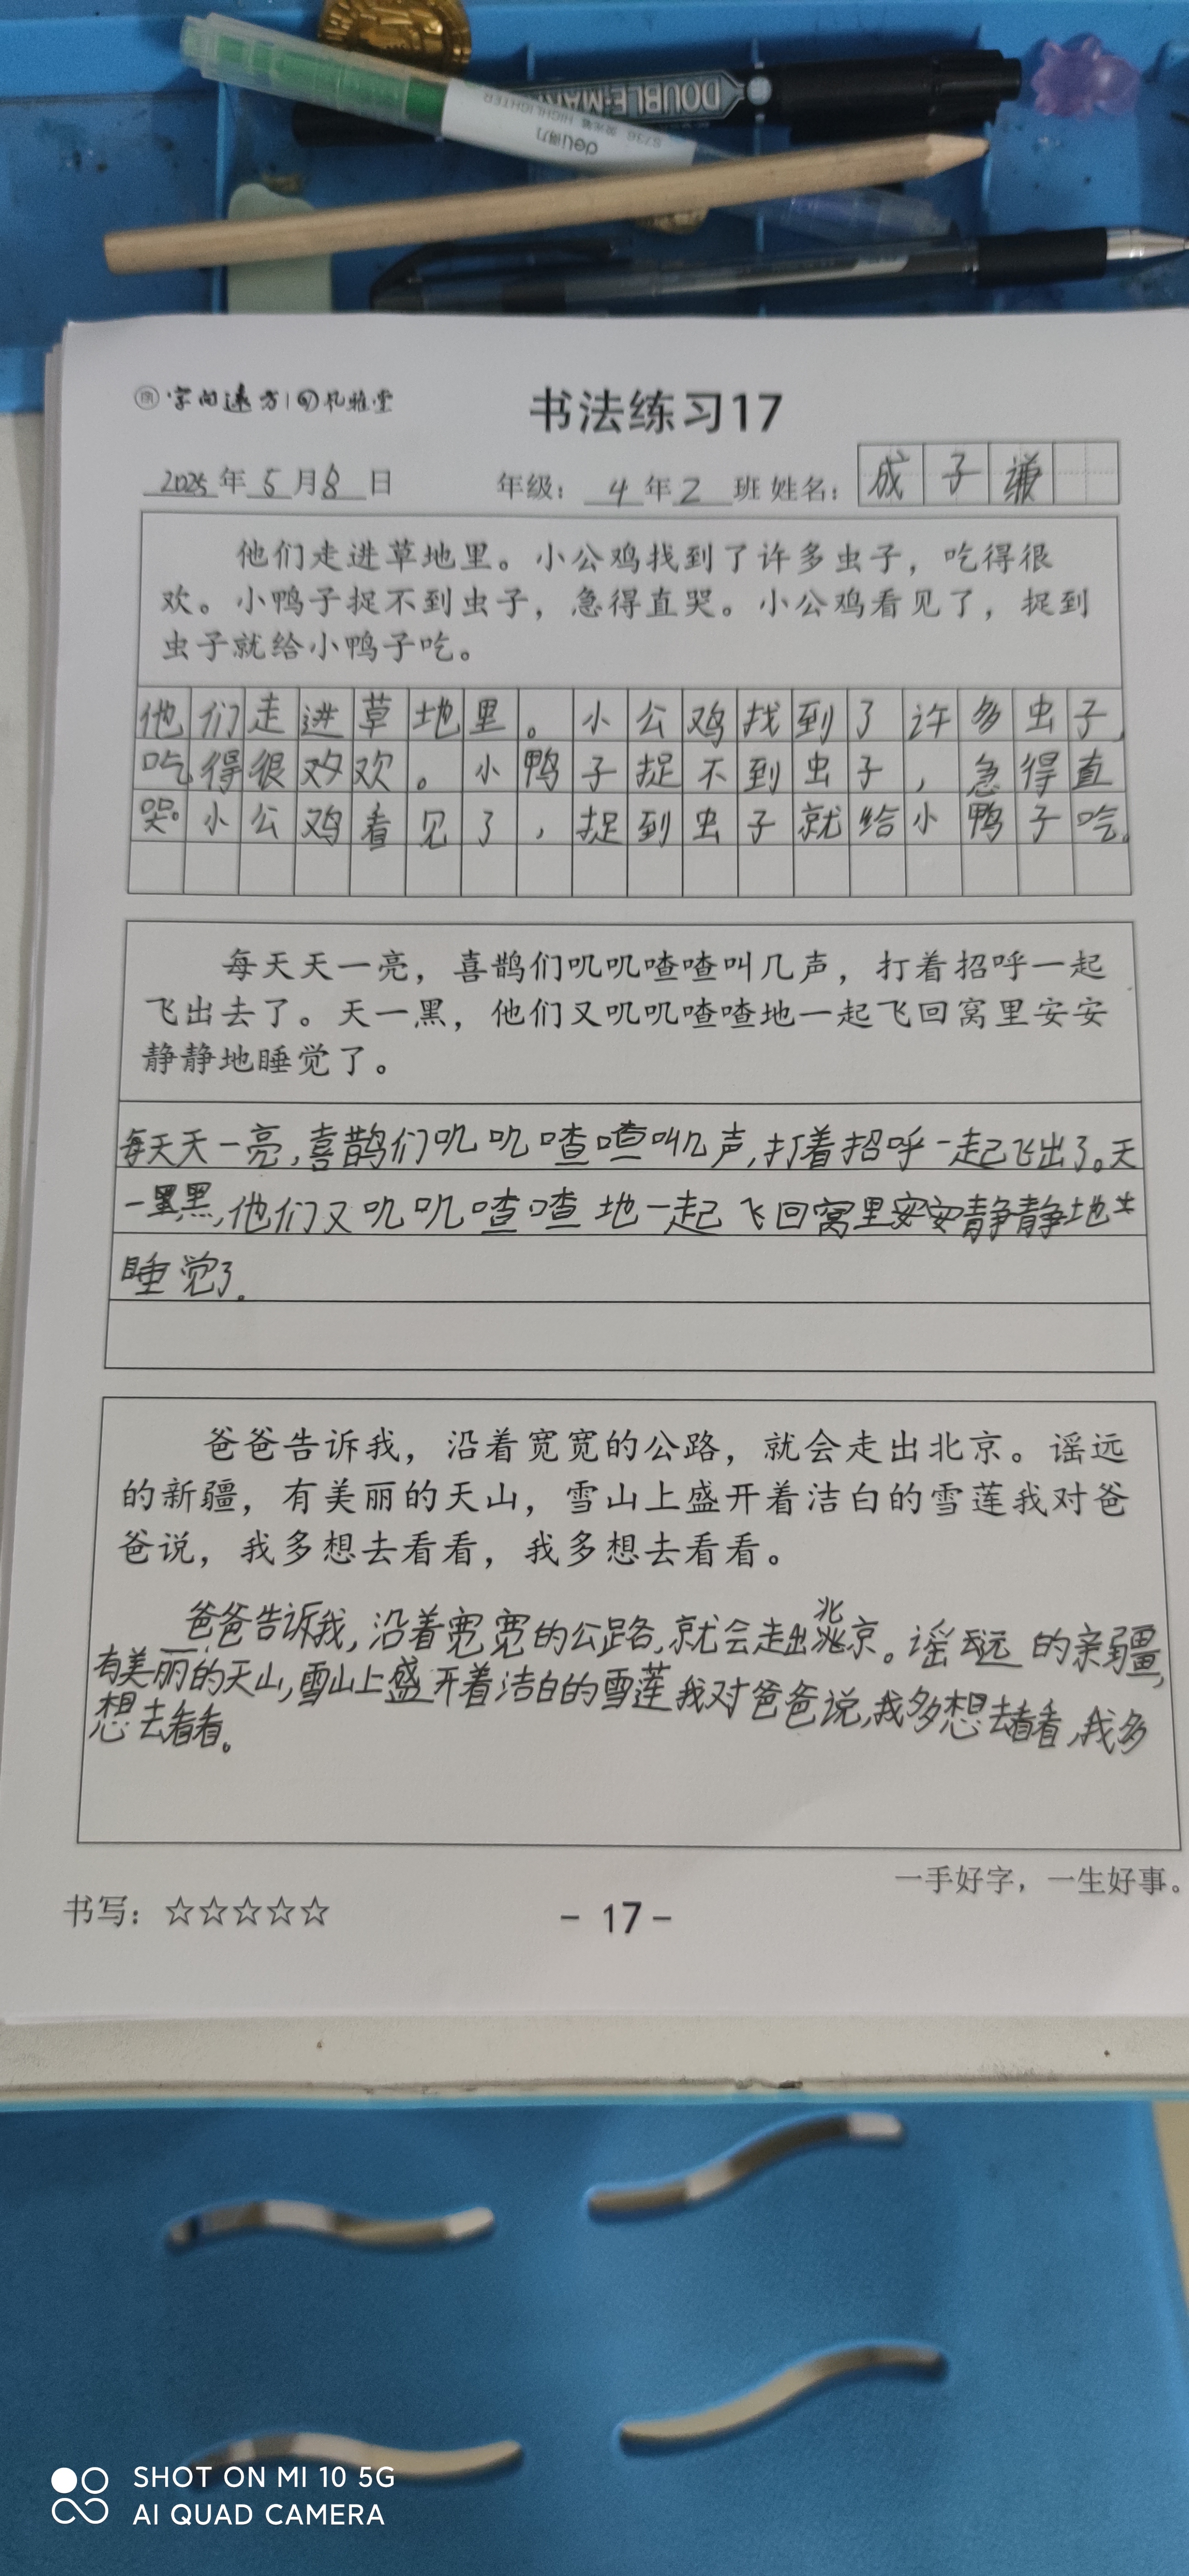 DOUBLE-MAR
S736 荧光笔 HIGHLIGHTER
deli得力
字向远方 礼雅堂
书法练习17
2025年5月8日 年级：4年2班 姓名：成子谦
他们走进草地里。小公鸡找到了许多虫子，吃得很
欢。小鸭子捉不到虫子，急得直哭。小公鸡看见了，捉到
虫子就给小鸭子吃。
他们走进草地里。小公鸡找到了许多虫子，
吃得很欢。小鸭子捉不到虫子，急得直
哭。小公鸡看见了，捉到虫子就给小鸭子吃。
每天天一亮，喜鹊们叽叽喳喳叫几声，打着招呼一起
飞出去了。天一黑，他们又叽叽喳喳地一起飞回窝里安安
静静地睡觉了。
每天天一亮，喜鹊们叽叽喳喳叫几声，打着招呼一起飞出了。天
一黑，他们又叽叽喳喳地一起飞回窝里安安静静地
睡觉了。
爸爸告诉我，沿着宽宽的公路，就会走出北京。谣远
的新疆，有美丽的天山，雪山上盛开着洁白的雪莲我对爸
爸说，我多想去看看，我多想去看看。
爸爸告诉我，沿着宽宽的公路，就会走出北京。谣远的亲疆，
有美丽的天山，雪山上盛开着洁白的雪莲我对爸爸说，我多想去看看，我多
想去看看。
一手好字，一生好事。
书写：☆☆☆☆☆
- 17 -
SHOT ON MI 10 5G
AI QUAD CAMERA